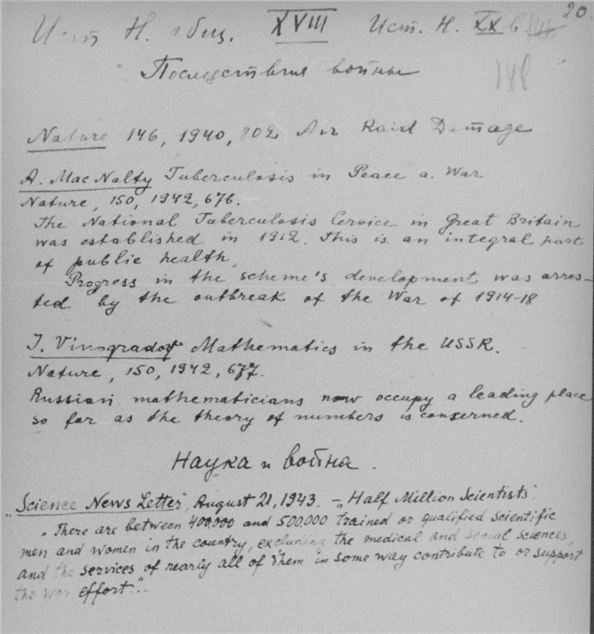 Ист. Н. общ. XVIII Ист. Н. XX б 20
148
Последствия войны
Nature 146, 1940, 202 Air Raid Damage
A. MacNalty Tuberculosis in Peace a. War
Nature, 150, 1942, 676.
The National Tuberculosis Cervice in Great Britain
was established in 1912. This is an integral part
of public health.
Progress in the scheme's development was arres-
ted by the outbreak of the War of 1914-18
I. Vinogradof Mathematics in the USSR.
Nature, 150, 1942, 677.
Russian mathematicians now occupy a leading place
so far as the theory of numbers is conserned.
Наука и война.
"Science News Letter", August 21, 1943. – "Half Million Scientists".
"There are between 400,000 and 500,000 trained or qualified scientific
men and women in the country, excluding the medical and social sciences,
and the services of nearly all of them in some way contribute to or support
the war effort".